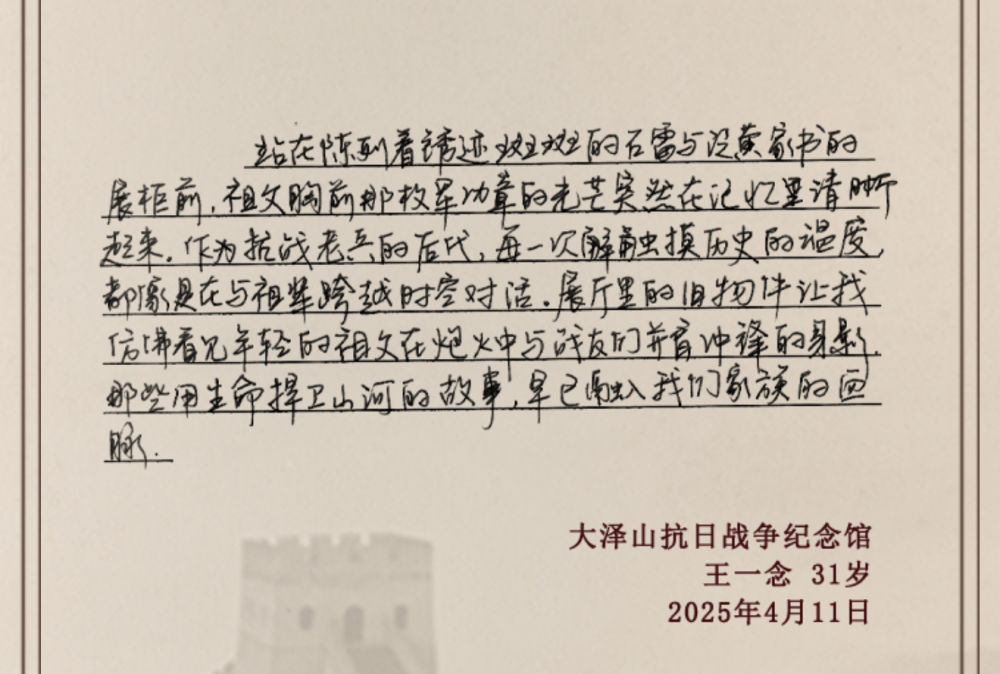 站在陈列着锈迹斑斑的石雷与泛黄家书的
展柜前，祖父胸前那枚军功章的光芒突然在记忆里清晰
起来。作为抗战老兵的后代，每一次触摸历史的温度，
都像是在与祖辈跨越时空对话。展厅里的旧物件让我
仿佛看见年轻的祖父在炮火中与战友们并肩冲锋的身影，
那些用生命捍卫山河的故事，早已融入我们家族的血
脉。
大泽山抗日战争纪念馆
王一念 31岁
2025年4月11日